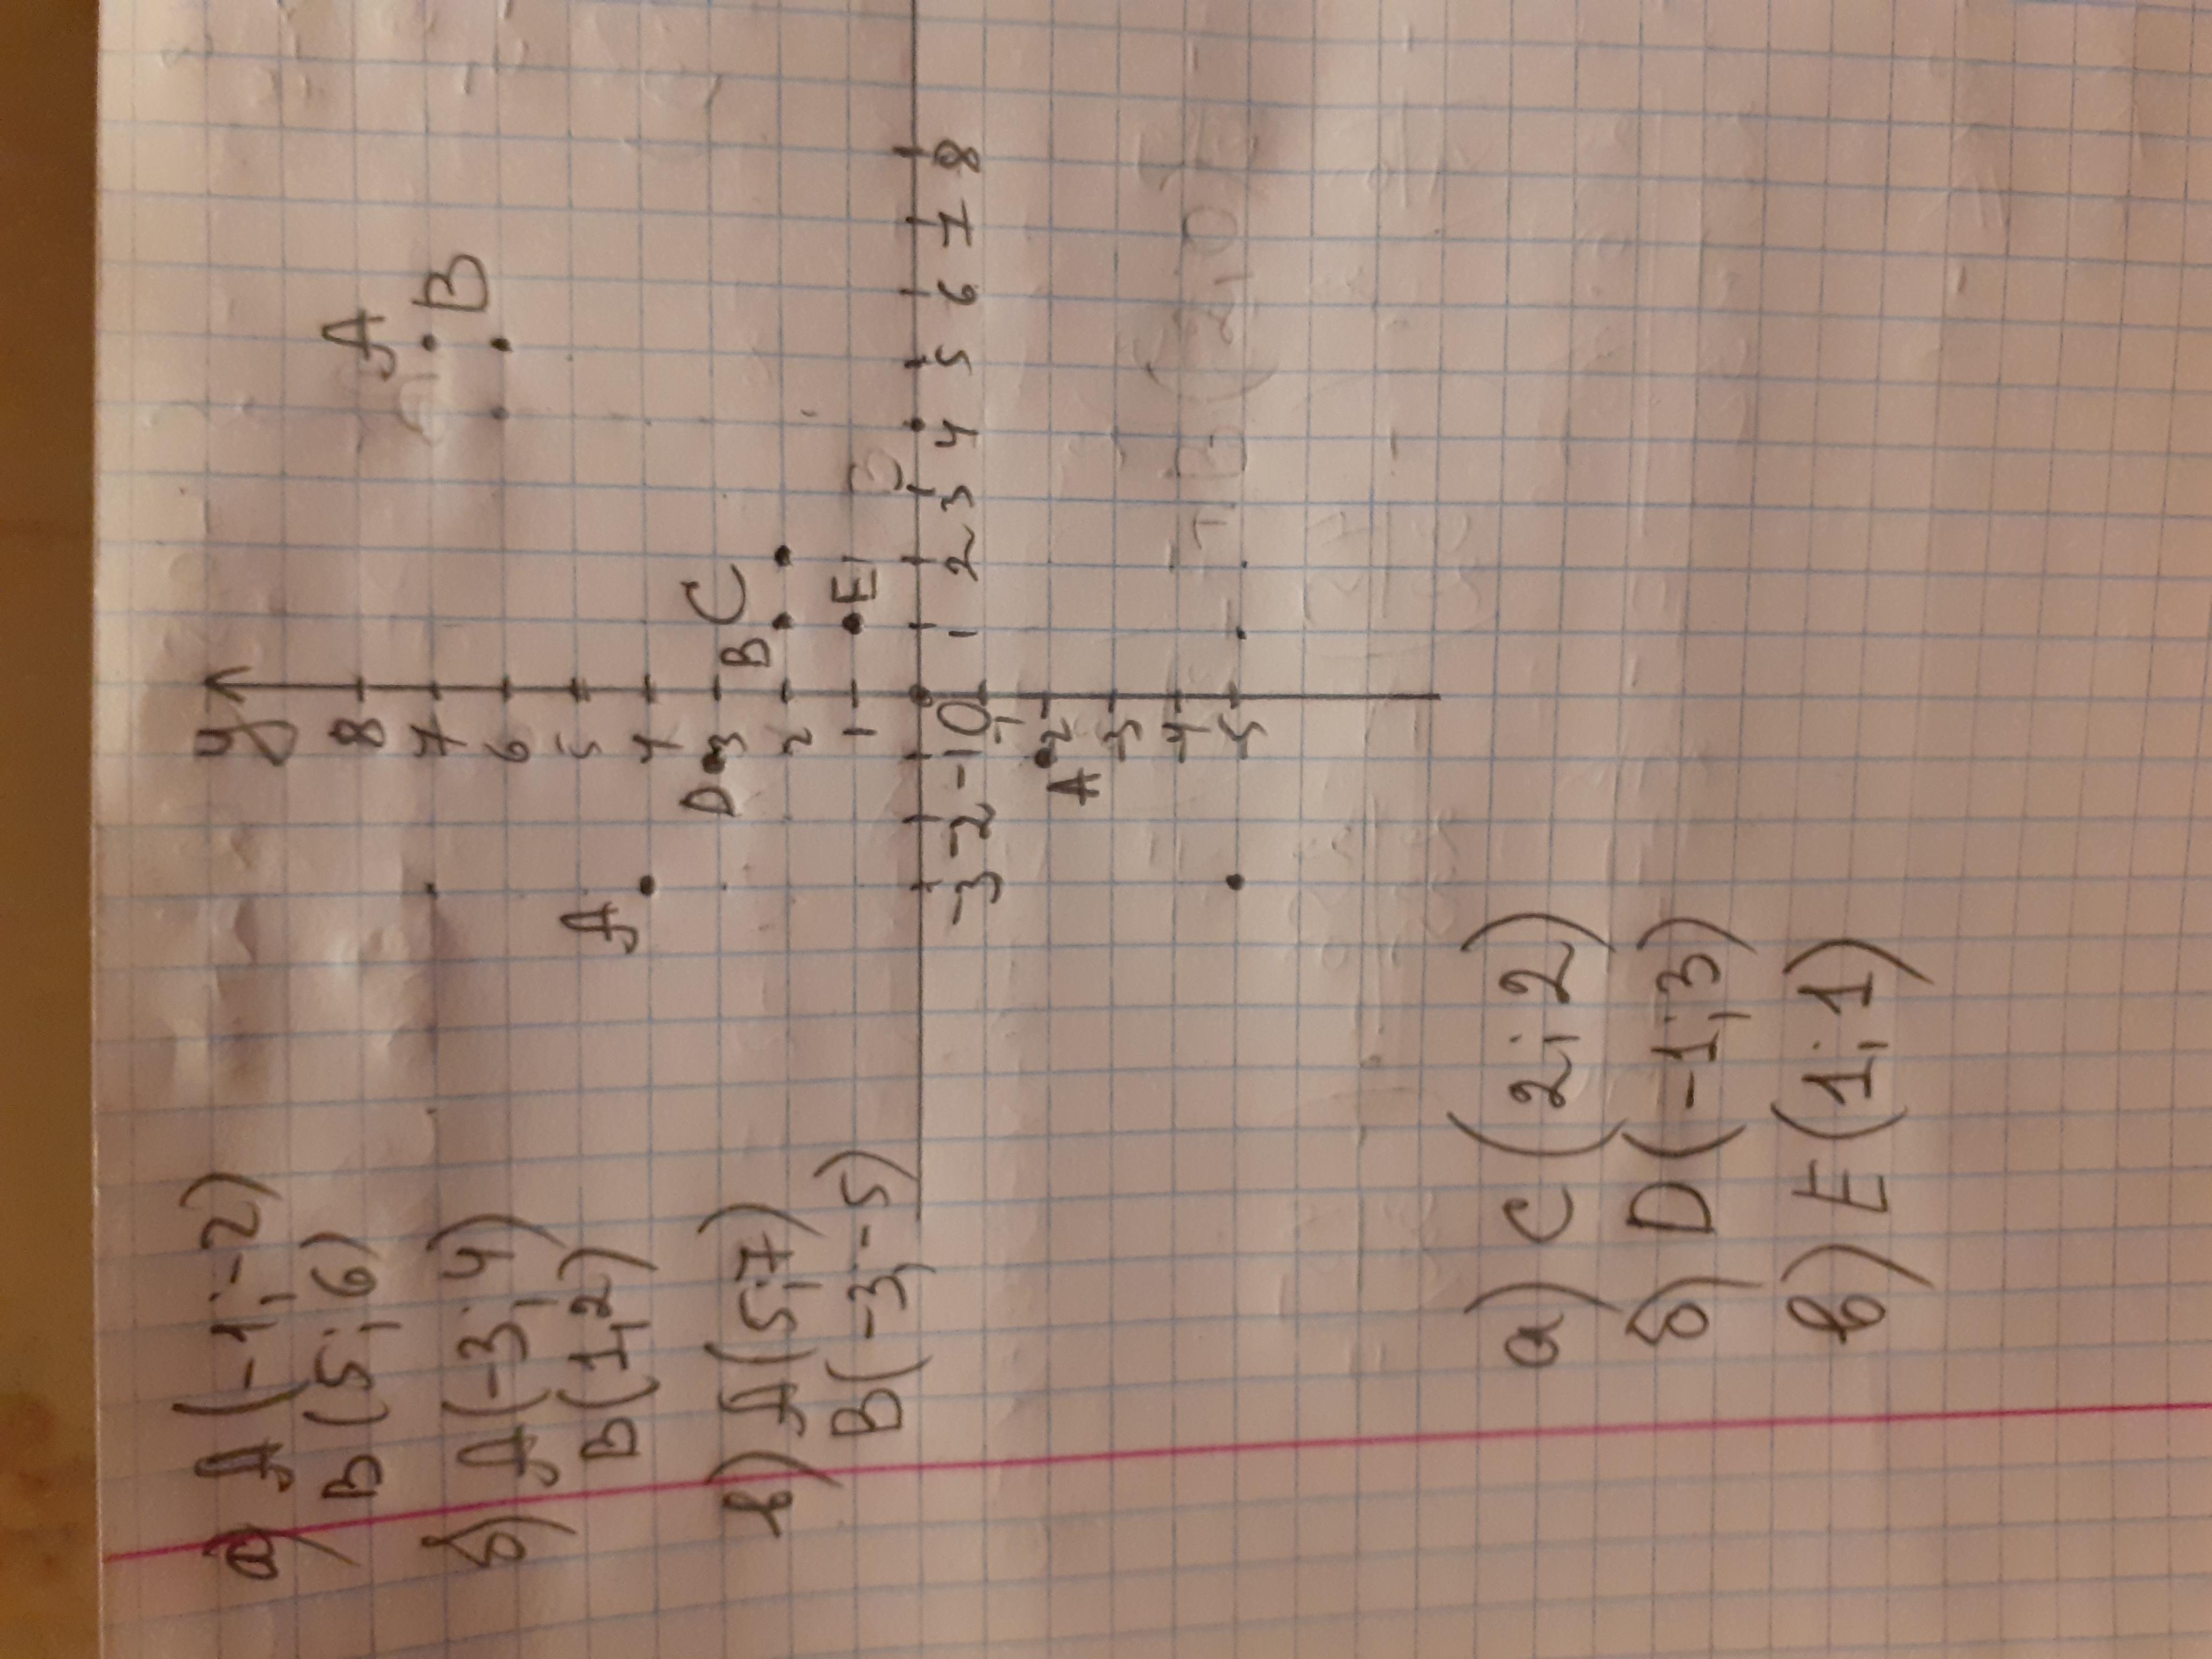 а) A(-1;-2)
B(5;6)
б) A(-3;4)
B(1;2)
в) A(5;7)
B(-3;-5)
y
8
A
7
B
6
5
A
4
D 3
C
B
2
1 E
-3 -2 -1 0 1 2 3 4 5 6 7 8
-1
-2
A
-3
-4
-5
а) C(2;2)
б) D(-1;3)
в) E(1;1)